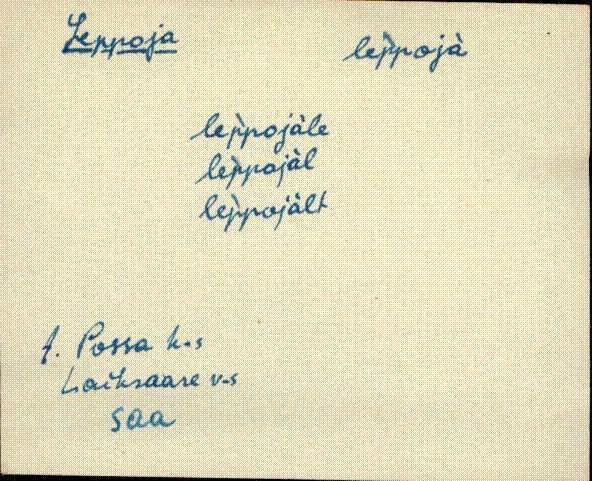 Leppoja
lep̀pojà
lep̀pojàle
lep̀pojàl
lep̀pojàlt
t. Possa k-s
Laiksaare v-s
Saa